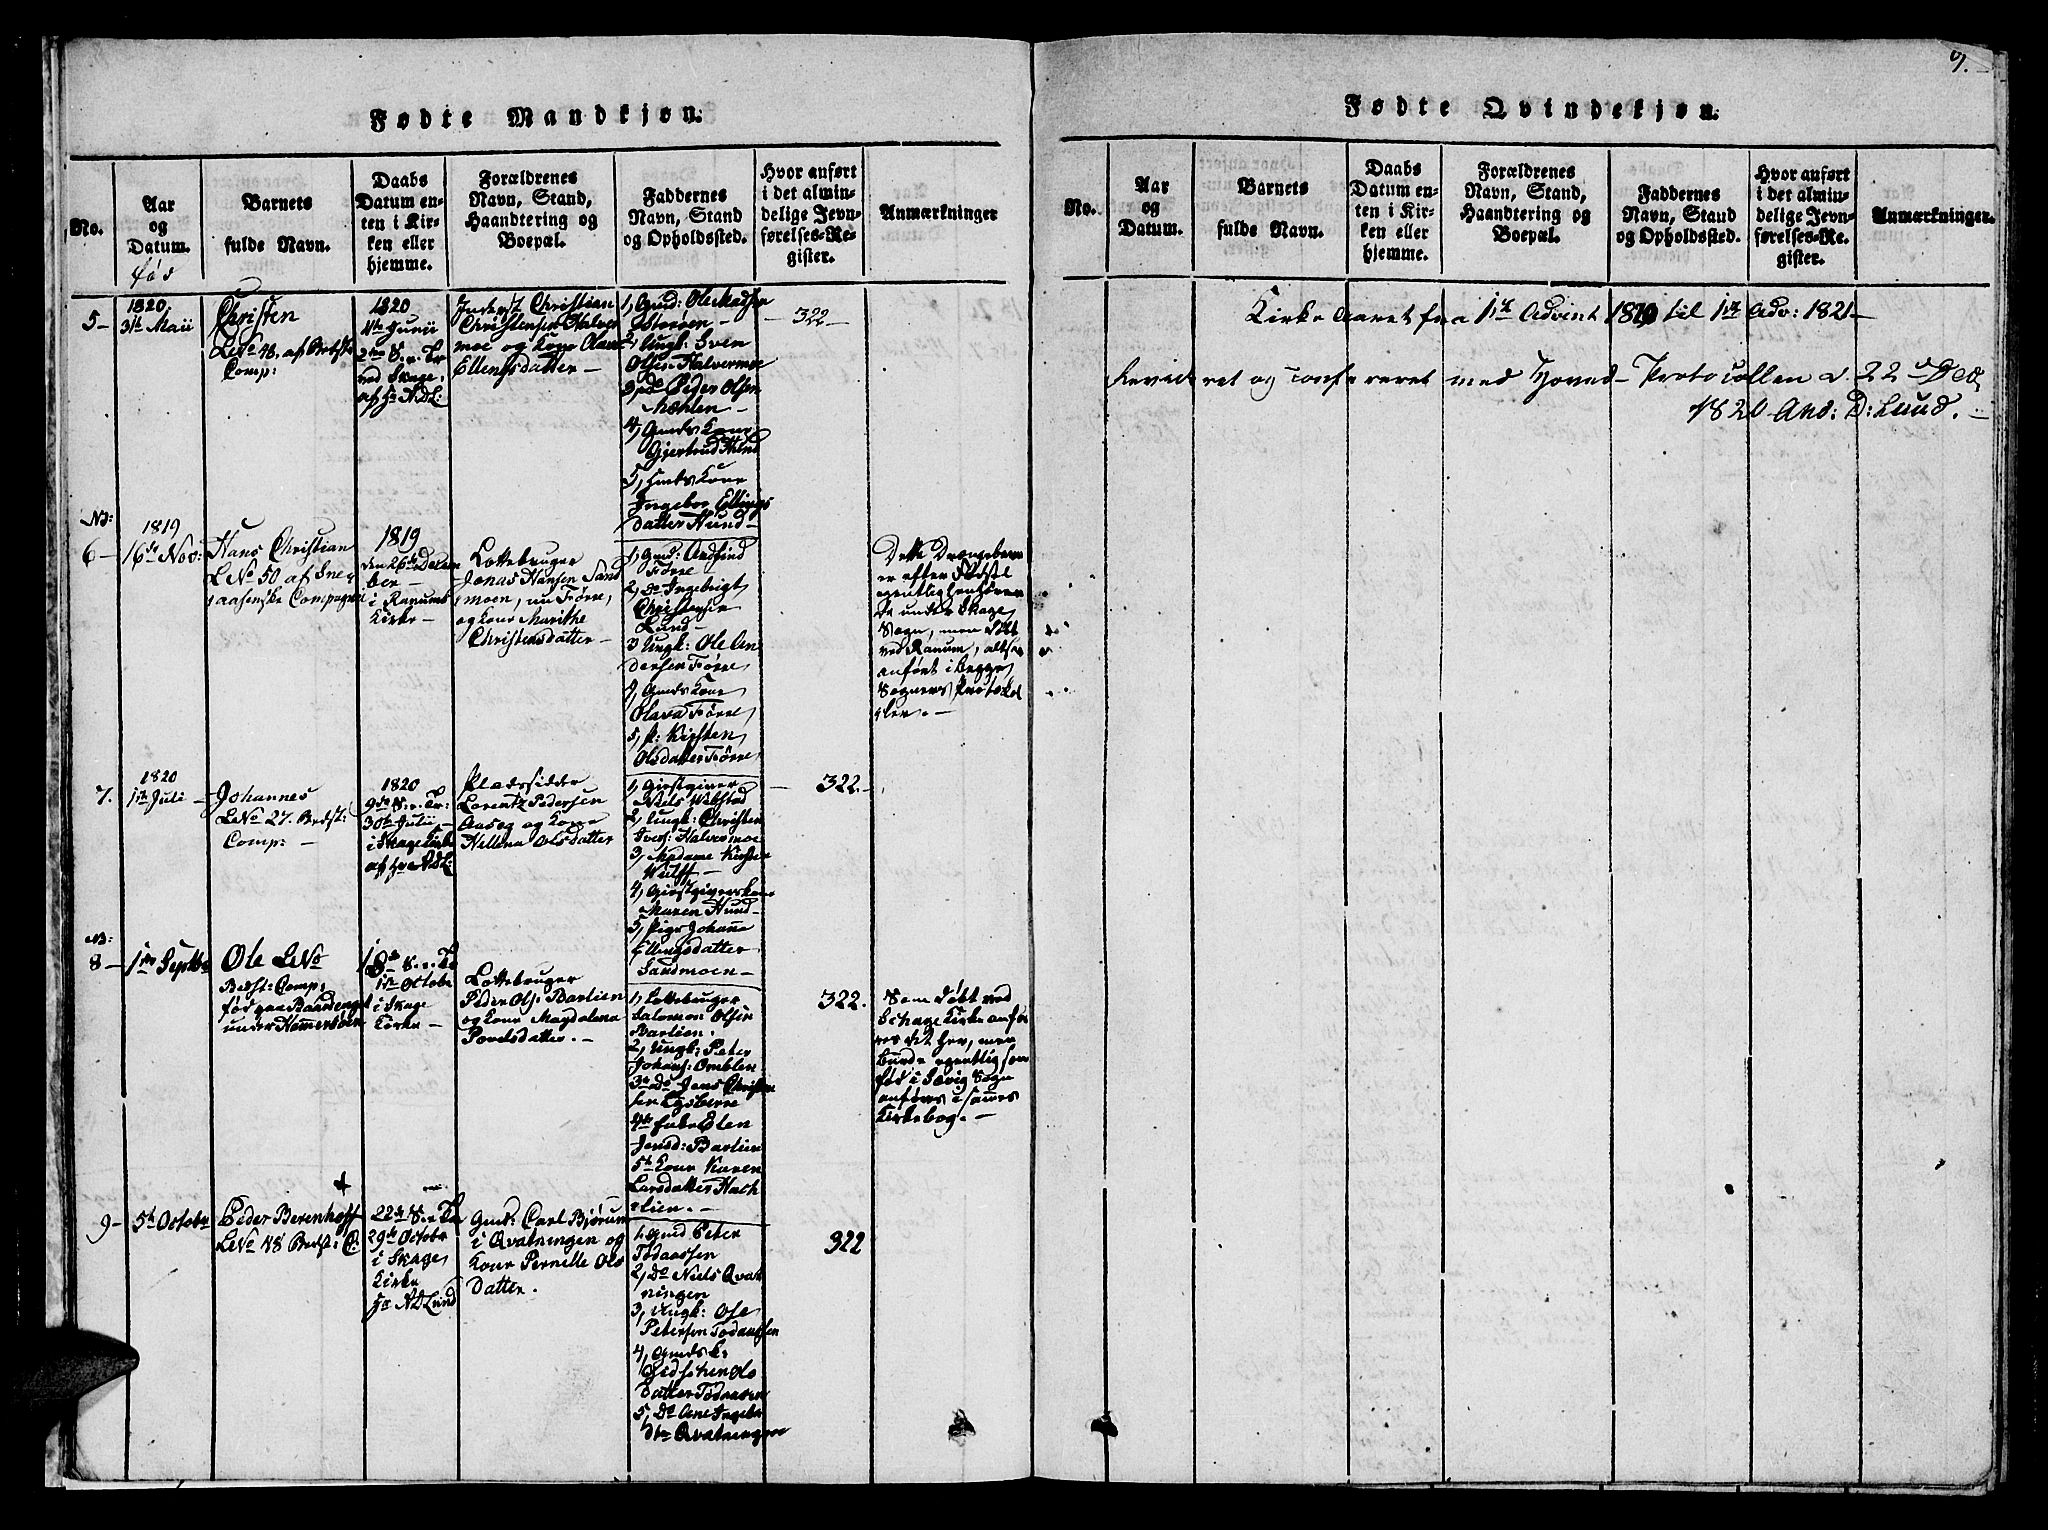 Fødte Mandkjøn:
No.
Aar
og
Datum.
fød
Barnets
fulde Navn.
Daabs
Datum en-
ten i Kir-
ken eller
hjemme.
Forældrenes
Navn, Stand,
Haandtering og
Boepæl.
Faddernes
Navn, Stand
og Opholdssted.
Hvor anført
i det almin-
delige Jevn-
førelses-Re-
gister.
Anmærkninger
5-
1820
31te Maii
Christen
LNo 48, af
Comp:
1820
4de Junii
2den S. e. Tr
ved Skage
af Hr NDL:
Christian
Christensen Halver
moe og Kone
Ellingsdatter -
1, Gmd: Ole Madsen
2, Ungk: Sven
Olsen Halvermoe
3, do Peder Olsen
Mæhlen -
4, Gmds Kone
Gjertrud Hund
5, Kone
Ingebor Ellings
datter Hund -
- 322 -
NB:
6 -
1819
16de Nov:
Hans Christian
LNo 50 af Sne
aasenske Compagnie
1819
den 26de Decem
ber -
i Ranums
Kirke -
Lottebruger
Jonas Hansen Sand
moen, nu Førre,
og Kone Marithe
Christensdatter -
1, Gmd: Arnfind
Førre
2, Do Ingebrigt
Christensen
Lund -
3 Ungk: Ole An
dersen Førre
4, Gmds Kone
Olava Førre
5, P: Kirsten
Olsdatter Førre
Dette Drengebarn
er efter Fødsel
egentlig henhøren
de under Skage
Sogn, men døbt
ved Ranum, altsaa
anført i begge
Sognes Protokol
ler. -
7.
1820
1ste Juli -
Johannes
LNo 27. Beds:
Comp: -
1820
9de S. e. Tr:
30te Julii -
i Skage Kirke
af Hr NDL:
Pladssidder
Lorentz Pedersen
Aaseg og Kone
Hellena Olsdatter
1, Giestgiver
Niels Webstad
2, Ungk: Christen
Ivers: Halvermoe
3, Madame Kirsten
Wulff -
4, Giestgiverskone
Maren Hund -
5, Pige Johanne
Ellingsdatter
Sandmoen -
- 322 -
NB:
8 -
1ste Septbr
Ole LNo
Bedst: Comp:
fød paa
under
18de S. e. Tr
1ste Octobr
i Skage
Kirke -
Lottebruger
Peder Ols: Barlien
og Kone Magdalena
Povelsdatter. -
1, Lottebruger
Salomon Olsen
Barlien.
2, Ungk: Peter
Johans: Omblen
3, do Jens Christen
sen
4de
Jensd: Barlien
5te Kone Karen
Larsdatter Hach
lien. -
322.
Som døbt ved
Schage Kirke anfø
res det her, men
burde egentlig som
fød i Sævig Sogn
anføres i sammes
Kirkebog. -
9 -
5te Octobr
Peder Berenhoff
LNo 48 Bedst: C:
22de S. e. Tr
29de Octobr
i Skage
Kirke
Hr NDLund
Gmd: Carl Bjørum
i Qvatningen og
Kone Pernelle Ols
datter.
1. Gmd Peter
Tødaassen
2, Do Niels Qvat
ningen
3, Ungk: Ole
Petersen Tødaassen
4, Gmds K:
Ols
datter Tødaasen
5, Do Ane Ingebr
dtr Qvatningen
322
9.
Fødte Qvindekjøn.
No.
Aar
og
Datum.
Barnets
fulde Navn.
Daabs
Datum en-
ten i Kir-
ken eller
hjemme.
Forældrenes
Navn, Stand,
Haandtering og
Boepæl.
Faddernes
Navn, Stand
og Opholdssted.
Hvor anført
i det almin-
delige Jevn-
førelses-Re-
gister.
Anmærkninger.
Kirke Aaret fra 1ste Advent 1820 til 1ste Adv: 1821 -
Revideret og confereret med Hoved-Protocollen d. 22 Dec
1820 And: D: Lund. -